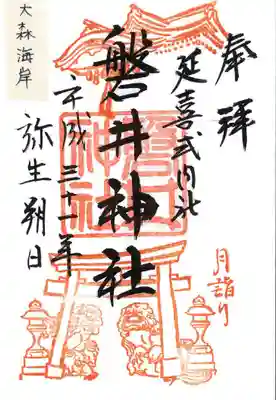 奉拝
月詣り
延喜式内社
磐井神社
磐井神社
平成三十一年
弥生朔日
大森海岸